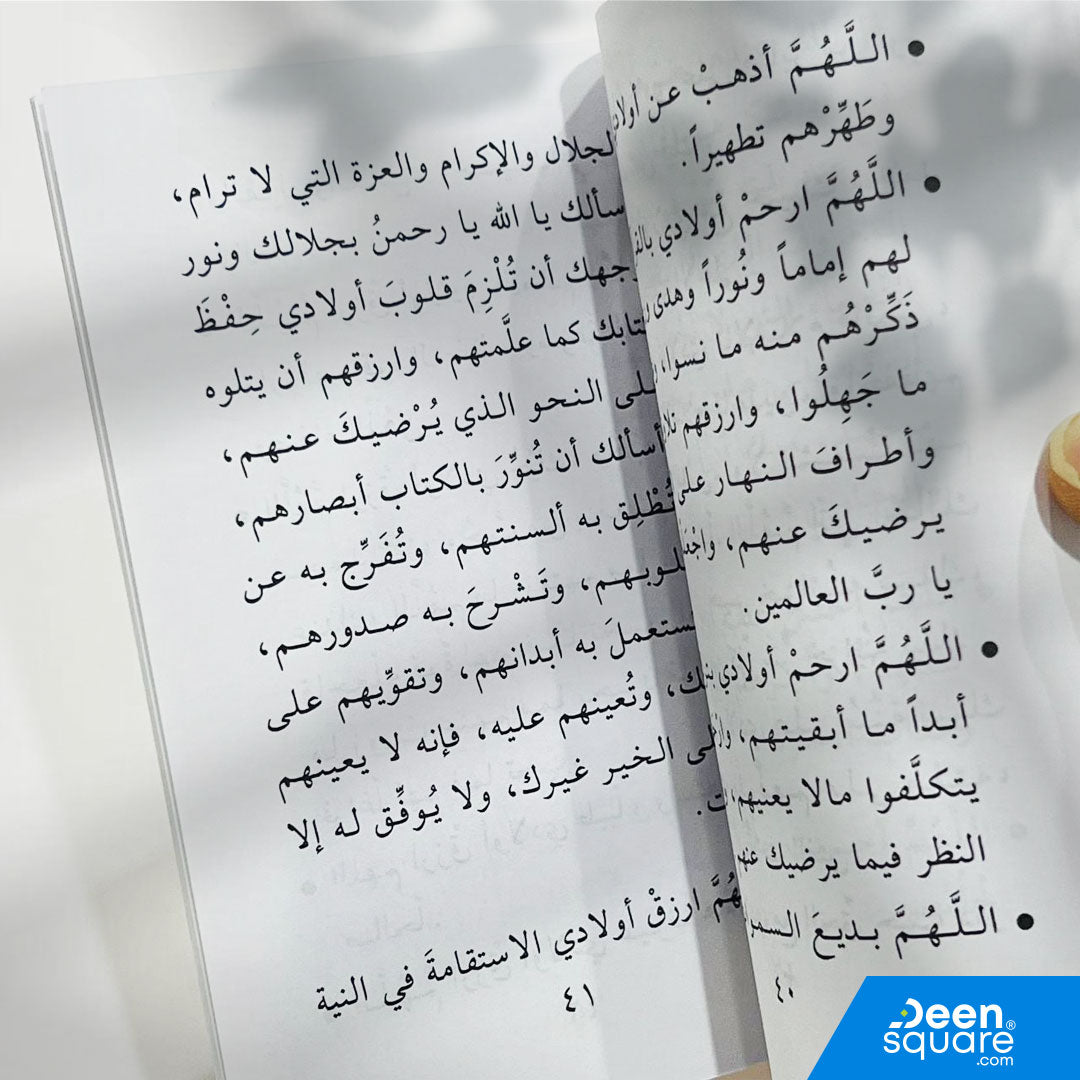 • اللَّهُمَّ أذهبْ عن
وطَهِّرْهم تطهيراً.
• اللَّهُمَّ ارحمْ أولادي
لهم إماماً ونُوراً وهدى
ذَكِّرْهُم منه ما نسوا،
ما جَهِلُوا، وارزقهم
وأطرافَ النهار على
يرضيكَ عنهم،
يا ربَّ العالمين.
• اللَّهُمَّ ارحمْ أولادي
أبداً ما أبقيتهم،
يتكلَّفوا مالا يعنيهم
النظر فيما يرضيك
• اللَّهُمَّ بديعَ
٤٠
لجلال والإكرام والعزة التي لا ترام،
سألك يا الله يا رحمنُ بجلالك ونور
جهك أن تُلْزِمَ قلوبَ أولادي حِفْظَ
تابك كما علَّمتهم، وارزقهم أن يتلوه
لى النحو الذي يُرْضيكَ عنهم،
أسألك أن تُنوِّرَ بالكتاب أبصارهم،
تُطْلِق به ألسنتهم، وتُفَرِّج به عن
لوبهم، وتَشْرحَ به صدورهم،
ستعملَ به أبدانهم، وتقوِّيهم على
لك، وتُعينهم عليه، فإنه لا يعينهم
لى الخير غيرك، ولا يُوفِّق له إلا
ت.
هُمَّ ارزقْ أولادي الاستقامةَ في النية
٤١
Deen
square®
.com